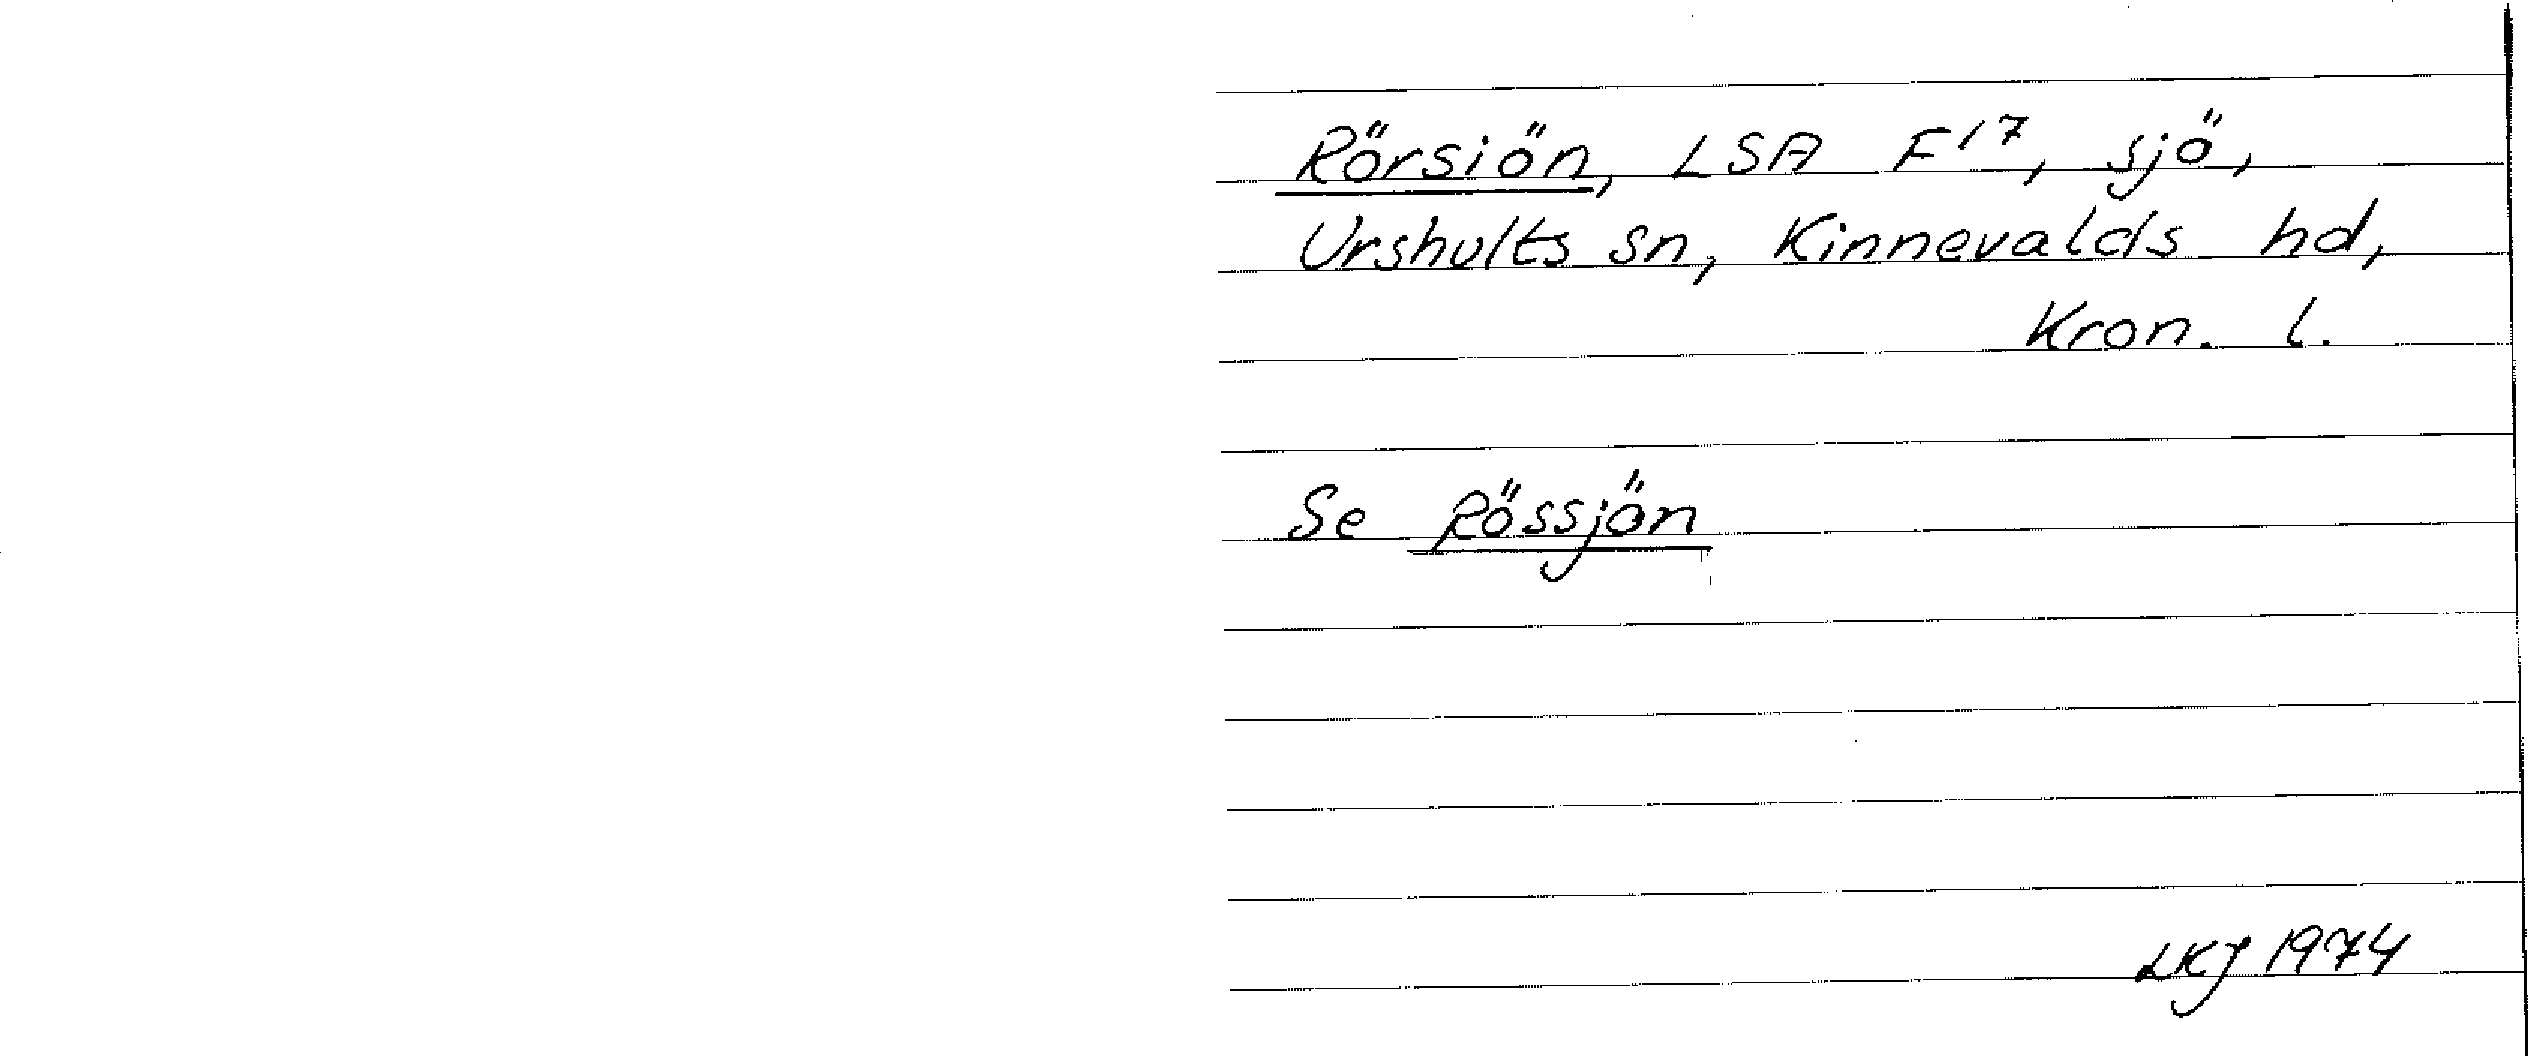 Rörsiön, LSA F17, sjö,
Urshults sn, Kinnevalds hd,
Kron. l.
Se Rössjön
LKJ 1974